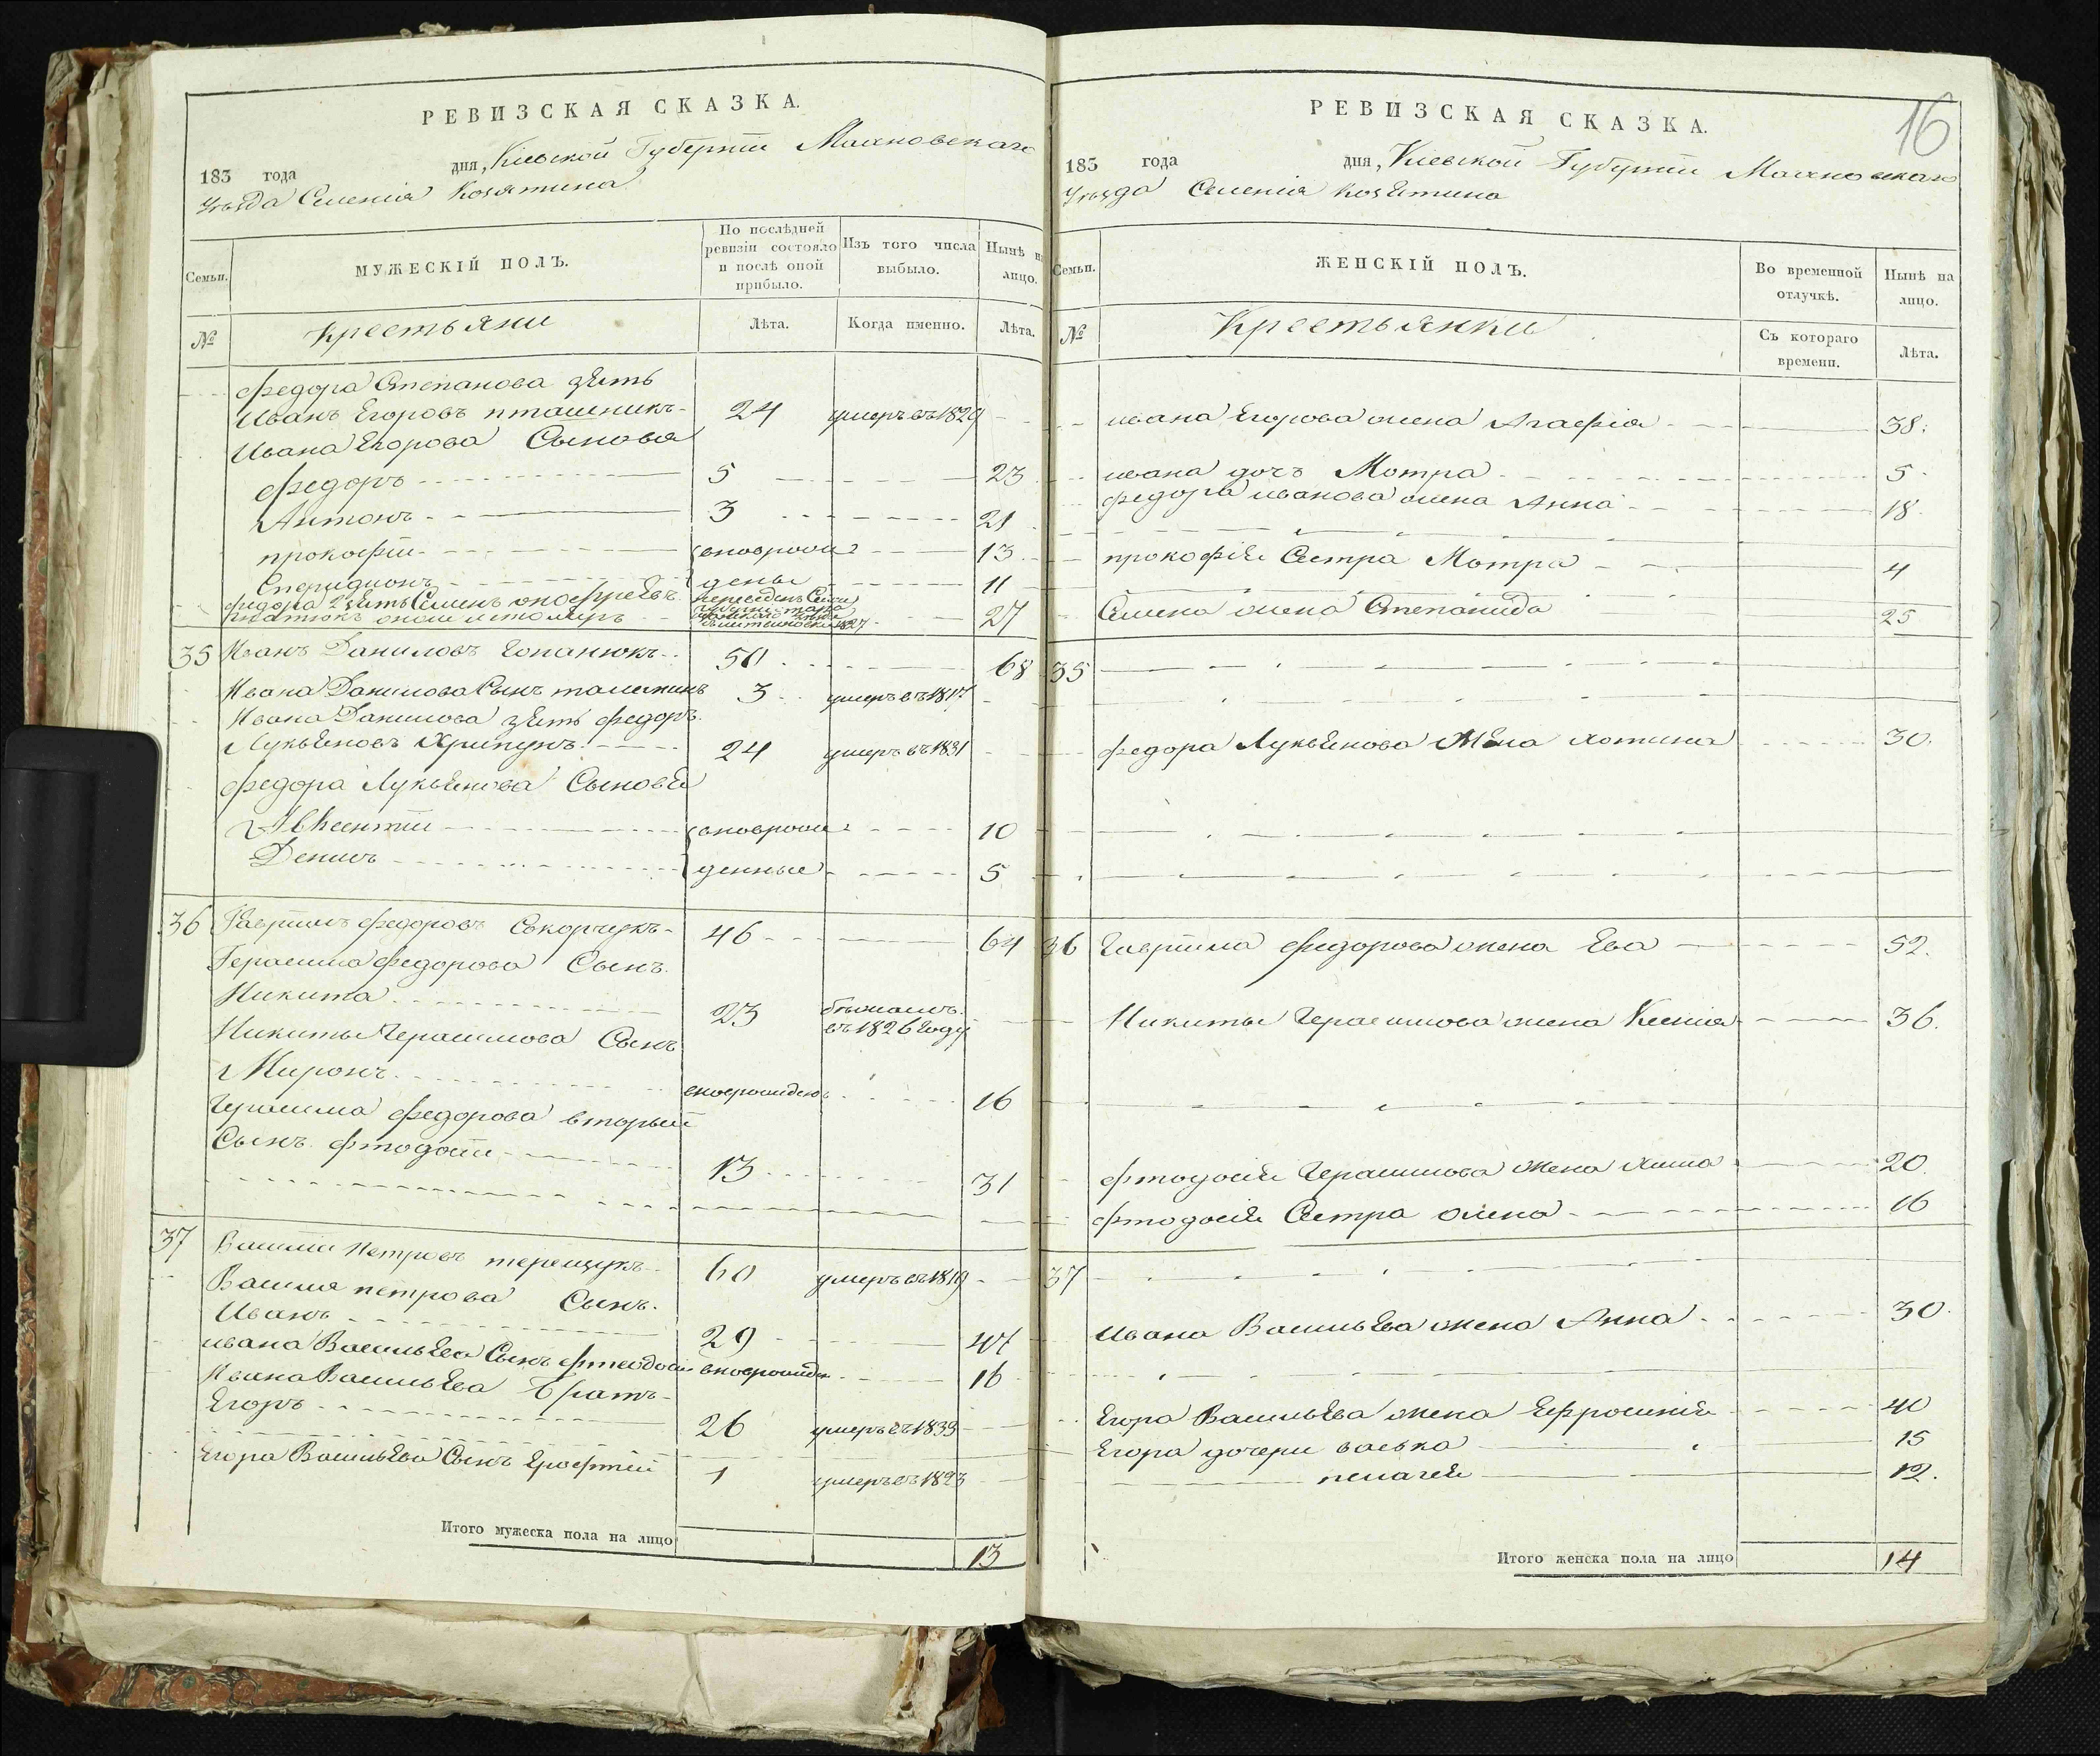 РЕВИЗСКАЯ СКАЗКА.
183 года дня, Кіевской Губерніи Махновскаго
Уѣзда Селенія Козятина
Семьи.
МУЖЕСКІЙ ПОЛЪ.
По послѣдней ревизіи состояло и послѣ оной прибыло.
Изъ того числа выбыло.
Нынѣ на лицо.
№
Крестьяни
Лѣта.
Когда именно.
Лѣта.
Федора Степанова зять
Иванъ Егоровъ пташникъ 24 умеръ въ 1829
Ивана Егорова Сыновья
Федоръ 5 23
Антонъ 3 21
прокофій вноврож 13
Спиридионъ дены 11
Федора 2 зять Семенъ
27
35 Иванъ Даниловъ Гопанюкъ 50 68
Ивана Данилова Сынъ 3 умеръ въ 1817
Ивана Данилова зять федоръ
Лукьяновъ Хрипунъ 24 умеръ въ 1831
федора Лукьянова Сыновья
Авксентій вноврож 10
Денисъ денные 5
36 Гаврилъ федоровъ 46 64
Герасима федорова Сынъ
Никита 23 бежалъ въ 1826 году
Никиты Герасимова Сынъ
Миронъ вноврожденъ 16
Герасима федорова вторый
Сынъ фтодосій 13 31
37 Василій Петровъ терещукъ 60 умеръ въ 1819
Василя петрова Сынъ
Иванъ 29 47
ивана Васильева Сынъ фтеодосій вноврожде 16
Ивана Васильева братъ
Егоръ 26 умеръ въ 1833
Егора Васильева Сынъ Ерофтей 1 умеръ въ 1823
Итого мужеска пола на лицо 13
16
РЕВИЗСКАЯ СКАЗКА.
183 года дня, Кіевской Губерніи Махновскаго
Уѣзда Селенія Козятина
Семьи.
ЖЕНСКІЙ ПОЛЪ.
Во временной отлучкѣ.
Нынѣ на лицо.
№
Крестьянки
Съ котораго времени.
Лѣта.
ивана Егорова жена Агафія 38.
ивана дочъ Мотра 5
федора иванова жена Анна 18
прокофія Сестра Мотра 4
Семена жена Степанида 25
35
федора Лукьянова Жена хотина 30.
36 Гаврила федорова жена Ева 52.
Никиты Герасимова жена Ксенія 36.
фтодосія Герасимова Жена 20
фтодосія Сестра олена 16
37
Ивана Васильева жена Анна 30.
Егора Васильева жена Ефросинія 40
Егора дочери васька 15
пелагея 12.
Итого женска пола на лицо 14